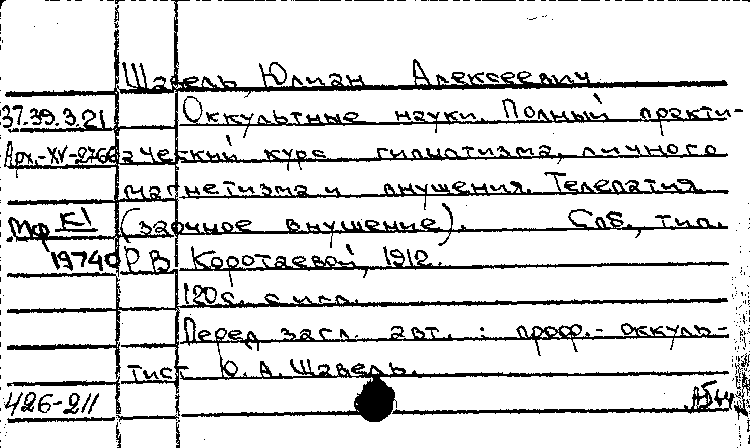 Шавель, Юлиан Алексеевич
37.39.3.21 Оккультные науки. Полный практи-
Арх.-XV-2766 ческий курс гипнотизма, личного
магнетизма и внушения. Телепатия
Мф К1 (заочное внушение). Спб., тип.
19740 Р В Коротаевой, 1912.
120с. с илл.
Перед загл. авт.: проф.-оккуль-
тист Ю. А. Шавель.
426-211